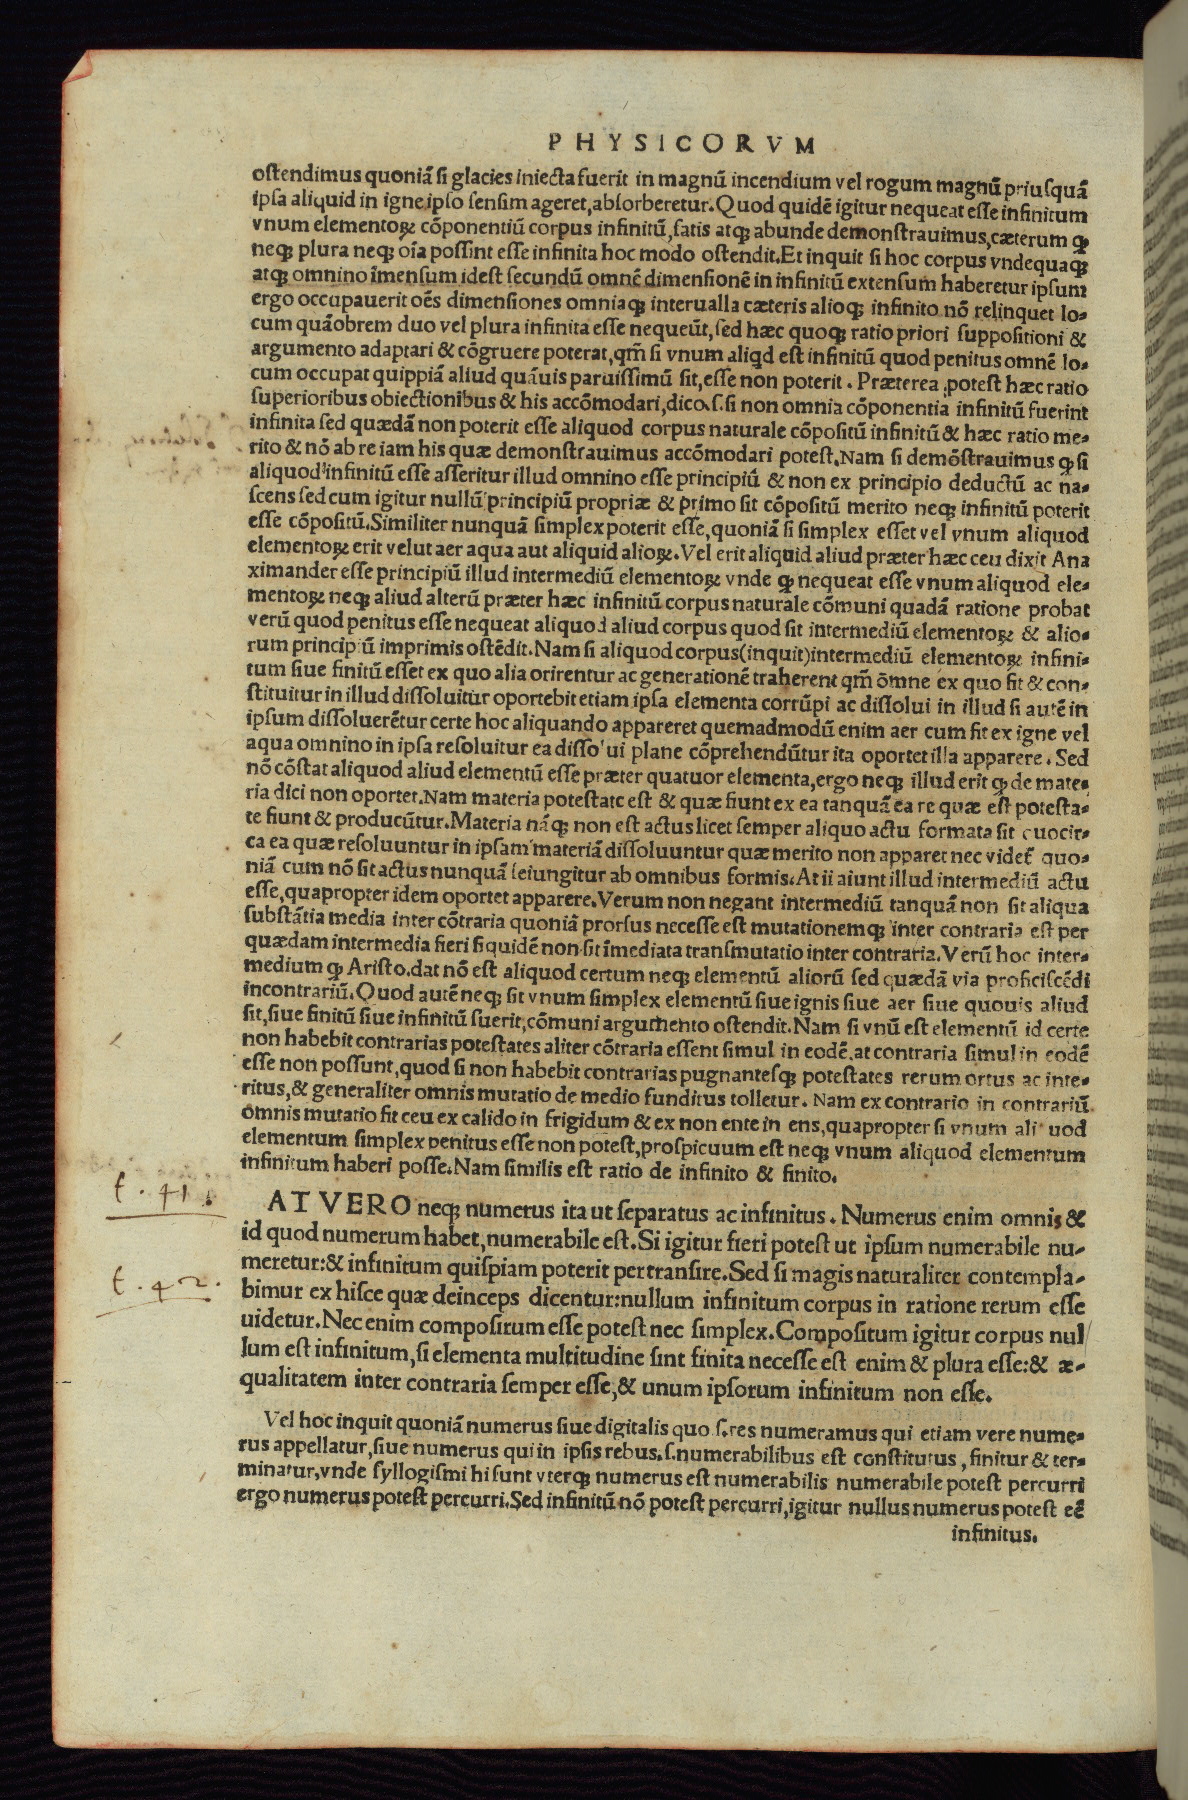 PHYSICORVM
ostendimus quoniã si glacies iniecta fuerit in magnũ incendium vel rogum magnũ priusquã
ipsa aliquid in igne ipso sensim ageret, absorberetur. Quod quidẽ igitur nequeat esse infinitum
vnum elementoꝝ cõponentiũ corpus infinitũ, satis atqꝫ abunde demonstrauimus, cæterum ꝙ
neqꝫ plura neqꝫ oĩa possint esse infinita hoc modo ostendit. Et inquit si hoc corpus vndequaqꝫ
atqꝫ omnino ĩmensum idest secundũ omnẽ dimensionẽ in infinitũ extensum haberetur ipsum
ergo occupauerit oẽs dimensiones omniaqꝫ interualla cæteris alioqꝫ infinito nõ relinquet lo-
cum quãobrem duo vel plura infinita esse nequeũt, sed hæc quoqꝫ ratio priori suppositioni &
argumento adaptari & cõgruere poterat, qm̃ si vnum aliqd est infinitũ quod penitus omnẽ lo-
cum occupat quippiã aliud quãuis paruissimũ sit, esse non poterit. Præterea potest hæc ratio
superioribus obiectionibus & his accõmodari, dico.s. si non omnia cõponentia infinitũ fuerint
infinita sed quædã non poterit esse aliquod corpus naturale cõpositũ infinitũ & hæc ratio me-
rito & nõ ab re iam his quæ demonstrauimus accõmodari potest. Nam si demõstrauimus ꝙ si
aliquod infinitũ esse asseritur illud omnino esse principiũ & non ex principio deductũ ac na-
scens sed cum igitur nullũ principiũ propriæ & primo sit cõpositũ merito neqꝫ infinitũ poterit
esse cõpositũ. Similiter nunquã simplex poterit esse, quoniã si simplex esset vel vnum aliquod
elementoꝝ erit velut aer aqua aut aliquid alioꝝ. Vel erit aliquid aliud præter hæc ceu dixit Ana
ximander esse principiũ illud intermediũ elementoꝝ vnde ꝙ nequeat esse vnum aliquod ele-
mentoꝝ neqꝫ aliud alterũ præter hæc infinitũ corpus naturale cõmuni quadã ratione probat
verũ quod penitus esse nequeat aliquod aliud corpus quod sit intermediũ elementoꝝ & alio-
rum principiũ imprimis ostẽdit. Nam si aliquod corpus (inquit) intermediũ elementoꝝ infini-
tum siue finitũ esset ex quo alia orirentur ac generationẽ traherent qm̃ õmne ex quo fit & con-
stituitur in illud dissoluitur oportebit etiam ipsa elementa corrũpi ac dissolui in illud si autẽ in
ipsum dissoluerẽtur certe hoc aliquando appareret quemadmodũ enim aer cum fit ex igne vel
aqua omnino in ipsa resoluitur ea dissolui plane cõprehendũtur ita oportet illa apparere. Sed
nõ cõstat aliquod aliud elementũ esse præter quatuor elementa, ergo neqꝫ illud erit ꝙ de mate-
ria dici non oportet. Nam materia potestate est & quæ fiunt ex ea tanquã ea re quæ est potesta-
te fiunt & producũtur. Materia nãqꝫ non est actus licet semper aliquo actu formata sit quocir-
ca ea quæ resoluuntur in ipsam materiã dissoluuntur quæ merito non apparet nec videt̃ quo-
niã cum nõ sit actus nunquã seiungitur ab omnibus formis. At ii aiunt illud intermediũ actu
esse, quapropter idem oportet apparere. Verum non negant intermediũ tanquã non sit aliqua
substãtia media inter cõtraria quoniã prorsus necesse est mutationemqꝫ inter contraria est per
quædam intermedia fieri siquidẽ non sit ĩmediata transmutatio inter contraria. Verũ hoc inter-
medium ꝙ Aristo. dat nõ est aliquod certum neqꝫ elementũ aliorũ sed quædã via proficiscẽdi
incontrariũ. Quod autẽ neqꝫ sit vnum simplex elementũ siue ignis siue aer siue quouis aliud
sit, siue finitũ siue infinitũ fuerit, cõmuni argumento ostendit. Nam si vnũ est elementũ id certe
non habebit contrarias potestates aliter cõtraria essent simul in eodẽ, at contraria simul in eodẽ
esse non possunt, quod si non habebit contrarias pugnantesqꝫ potestates rerum ortus ac inte-
ritus, & generaliter omnis mutatio de medio funditus tolletur. Nam ex contrario in contrariũ
omnis mutatio fit ceu ex calido in frigidum & ex non ente in ens, quapropter si vnum ali uod
elementum simplex penitus esse non potest, prospicuum est neqꝫ vnum aliquod elementum
infinitum haberi posse. Nam similis est ratio de infinito & finito.
t. 41.
AT VERO neqꝫ numerus ita ut separatus ac infinitus. Numerus enim omnis &
id quod numerum habet, numerabile est. Si igitur fieri potest ut ipsum numerabile nu-
meretur: & infinitum quispiam poterit pertransire. Sed si magis naturaliter contempla-
t. 42.
bimur ex hisce quæ deinceps dicentur: nullum infinitum corpus in ratione rerum esse
uidetur. Nec enim compositum esse potest nec simplex. Compositum igitur corpus nul
lum est infinitum, si elementa multitudine sint finita necesse est enim & plura esse: & æ-
qualitatem inter contraria semper esse, & unum ipsorum infinitum non esse.
Vel hoc inquit quoniã numerus siue digitalis quo .s. res numeramus qui etiam vere nume-
rus appellatur, siue numerus qui in ipsis rebus .s. numerabilibus est constitutus, finitur & ter-
minatur, vnde syllogismi hi sunt vterqꝫ numerus est numerabilis numerabile potest percurri
ergo numerus potest percurri. Sed infinitũ nõ potest percurri, igitur nullus numerus potest eẽ
infinitus.